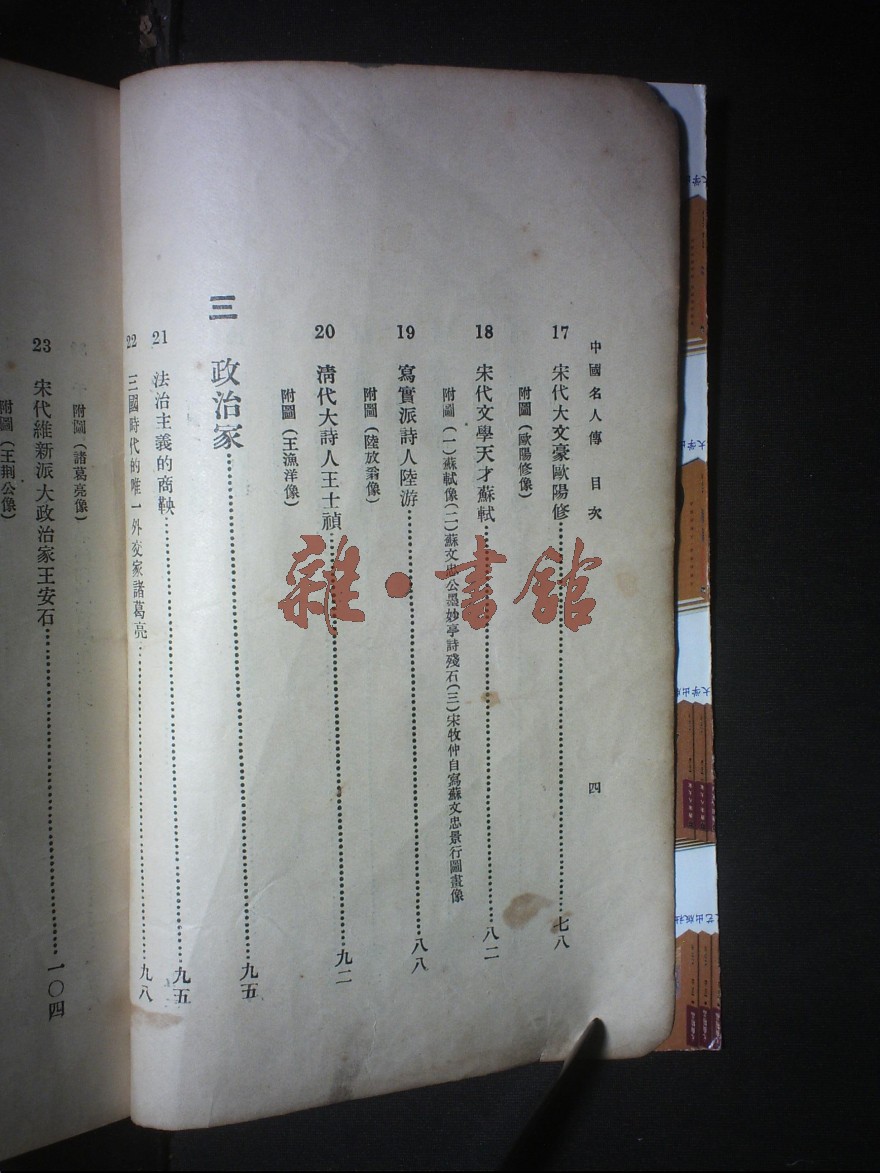 中國名人傳 目次 四
17 宋代大文豪歐陽修……七八
附圖(歐陽修像)
18 宋代文學天才蘇軾……八二
附圖(一)蘇軾像(二)蘇文忠公墨妙亭詩殘石(三)宋牧仲自寫蘇文忠景行圖畫像
19 寫實派詩人陸游……八八
附圖(陸放翁像)
20 清代大詩人王士禎……九二
附圖(王漁洋像)
三 政治家……九五
21 法治主義的商鞅……九五
22 三國時代的唯一外交家諸葛亮……九八
附圖(諸葛亮像)
23 宋代維新派大政治家王安石……一〇四
附圖(王荆公像)
雜·書館